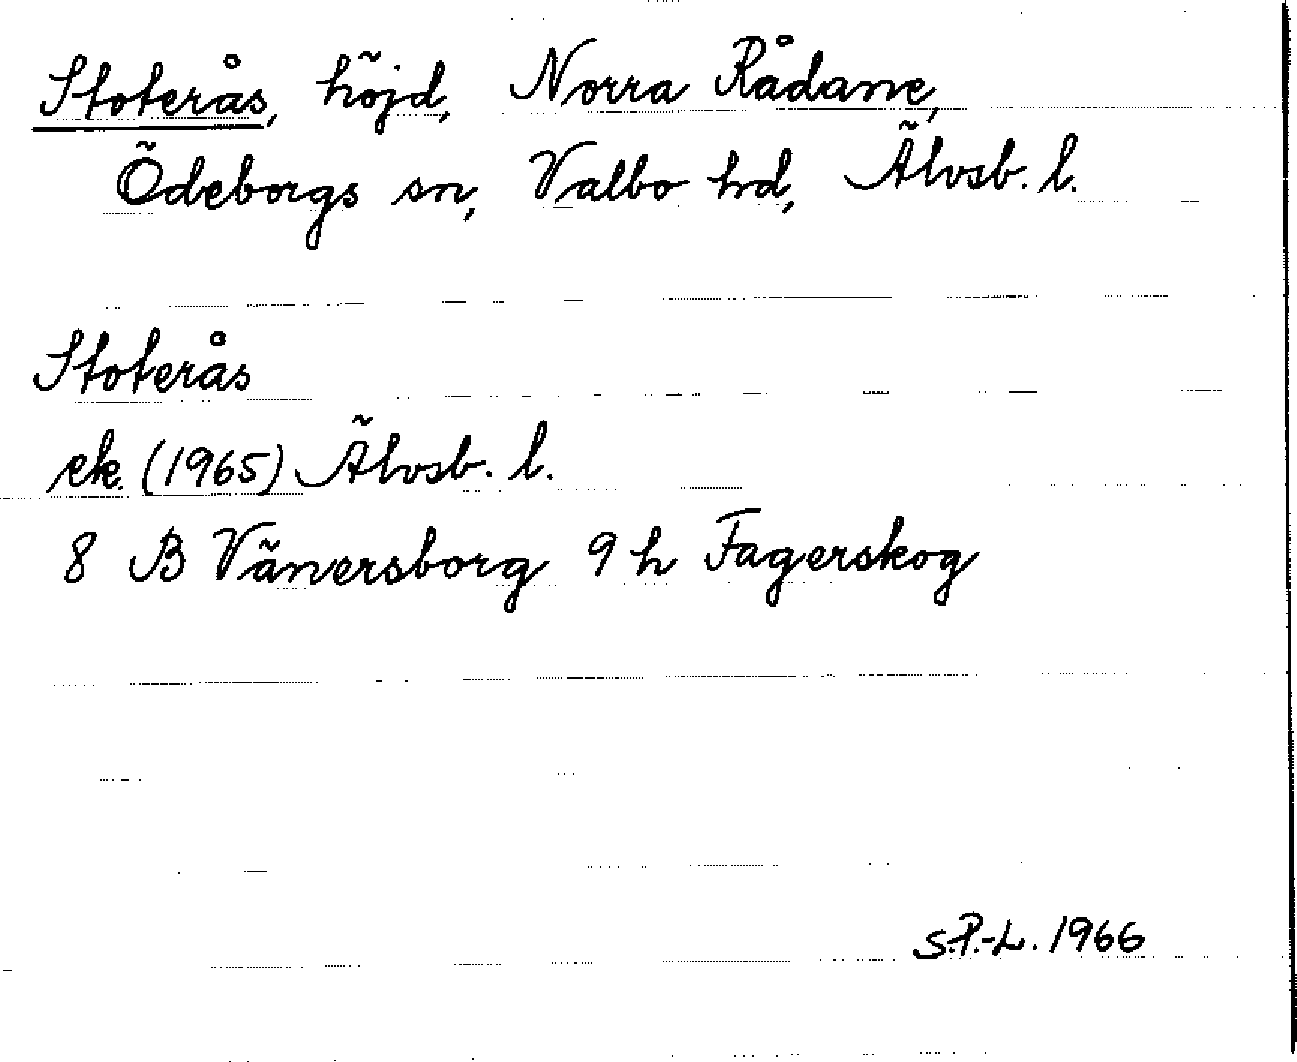 Stoterås, höjd, Norra Rådane,
Ödeborgs sn, Valbo hd, Älvsb. l.
Stoterås
ek. (1965) Älvsb. l.
8 B Vänersborg 9 h Fagerskog
S.P.-L. 1966